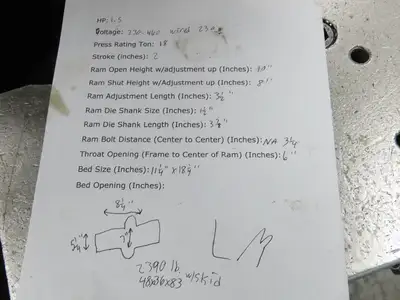 HP: 1.5
Voltage: 230-460 wired 230v
Press Rating Ton: 18
Stroke (inches): 2
Ram Open Height w/adjustment up (Inches): 10"
Ram Shut Height w/Adjustment up (Inches): 8"
Ram Adjustment Length (Inches): 3½"
Ram Die Shank Size (Inches): 1½"
Ram Die Shank Length (Inches):
Ram Bolt Distance (Center to Center) (Inches): NA 3¼
Throat Opening (Frame to Center of Ram) (Inches): 6"
Bed Size (Inches): 11¼" x 18¼"
Bed Opening (Inches):
8¼"
5¼"
7"
LM
2390 lb.
48x36x83 w/skid